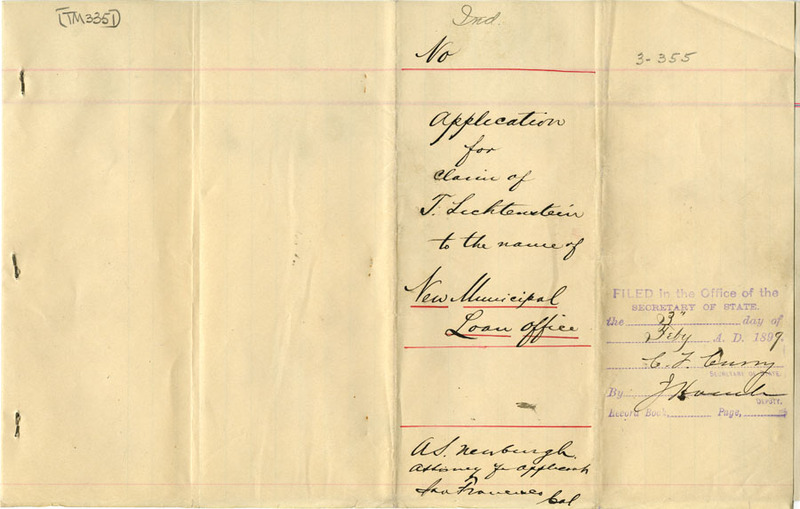 [TM3351]
Ind.
No
3-355
Application
for
claim of
T. Lichtenstein
to the name of
New Municipal
Loan office
FILED in the Office of the
SECRETARY OF STATE.
the 23" day of
Feby A. D. 1899.
C. F. Curry
SECRETARY OF STATE.
By J
DEPUTY.
Record Book, Page,
A.S. Newburgh.
Attorney for applicant
San Francisco
Cal